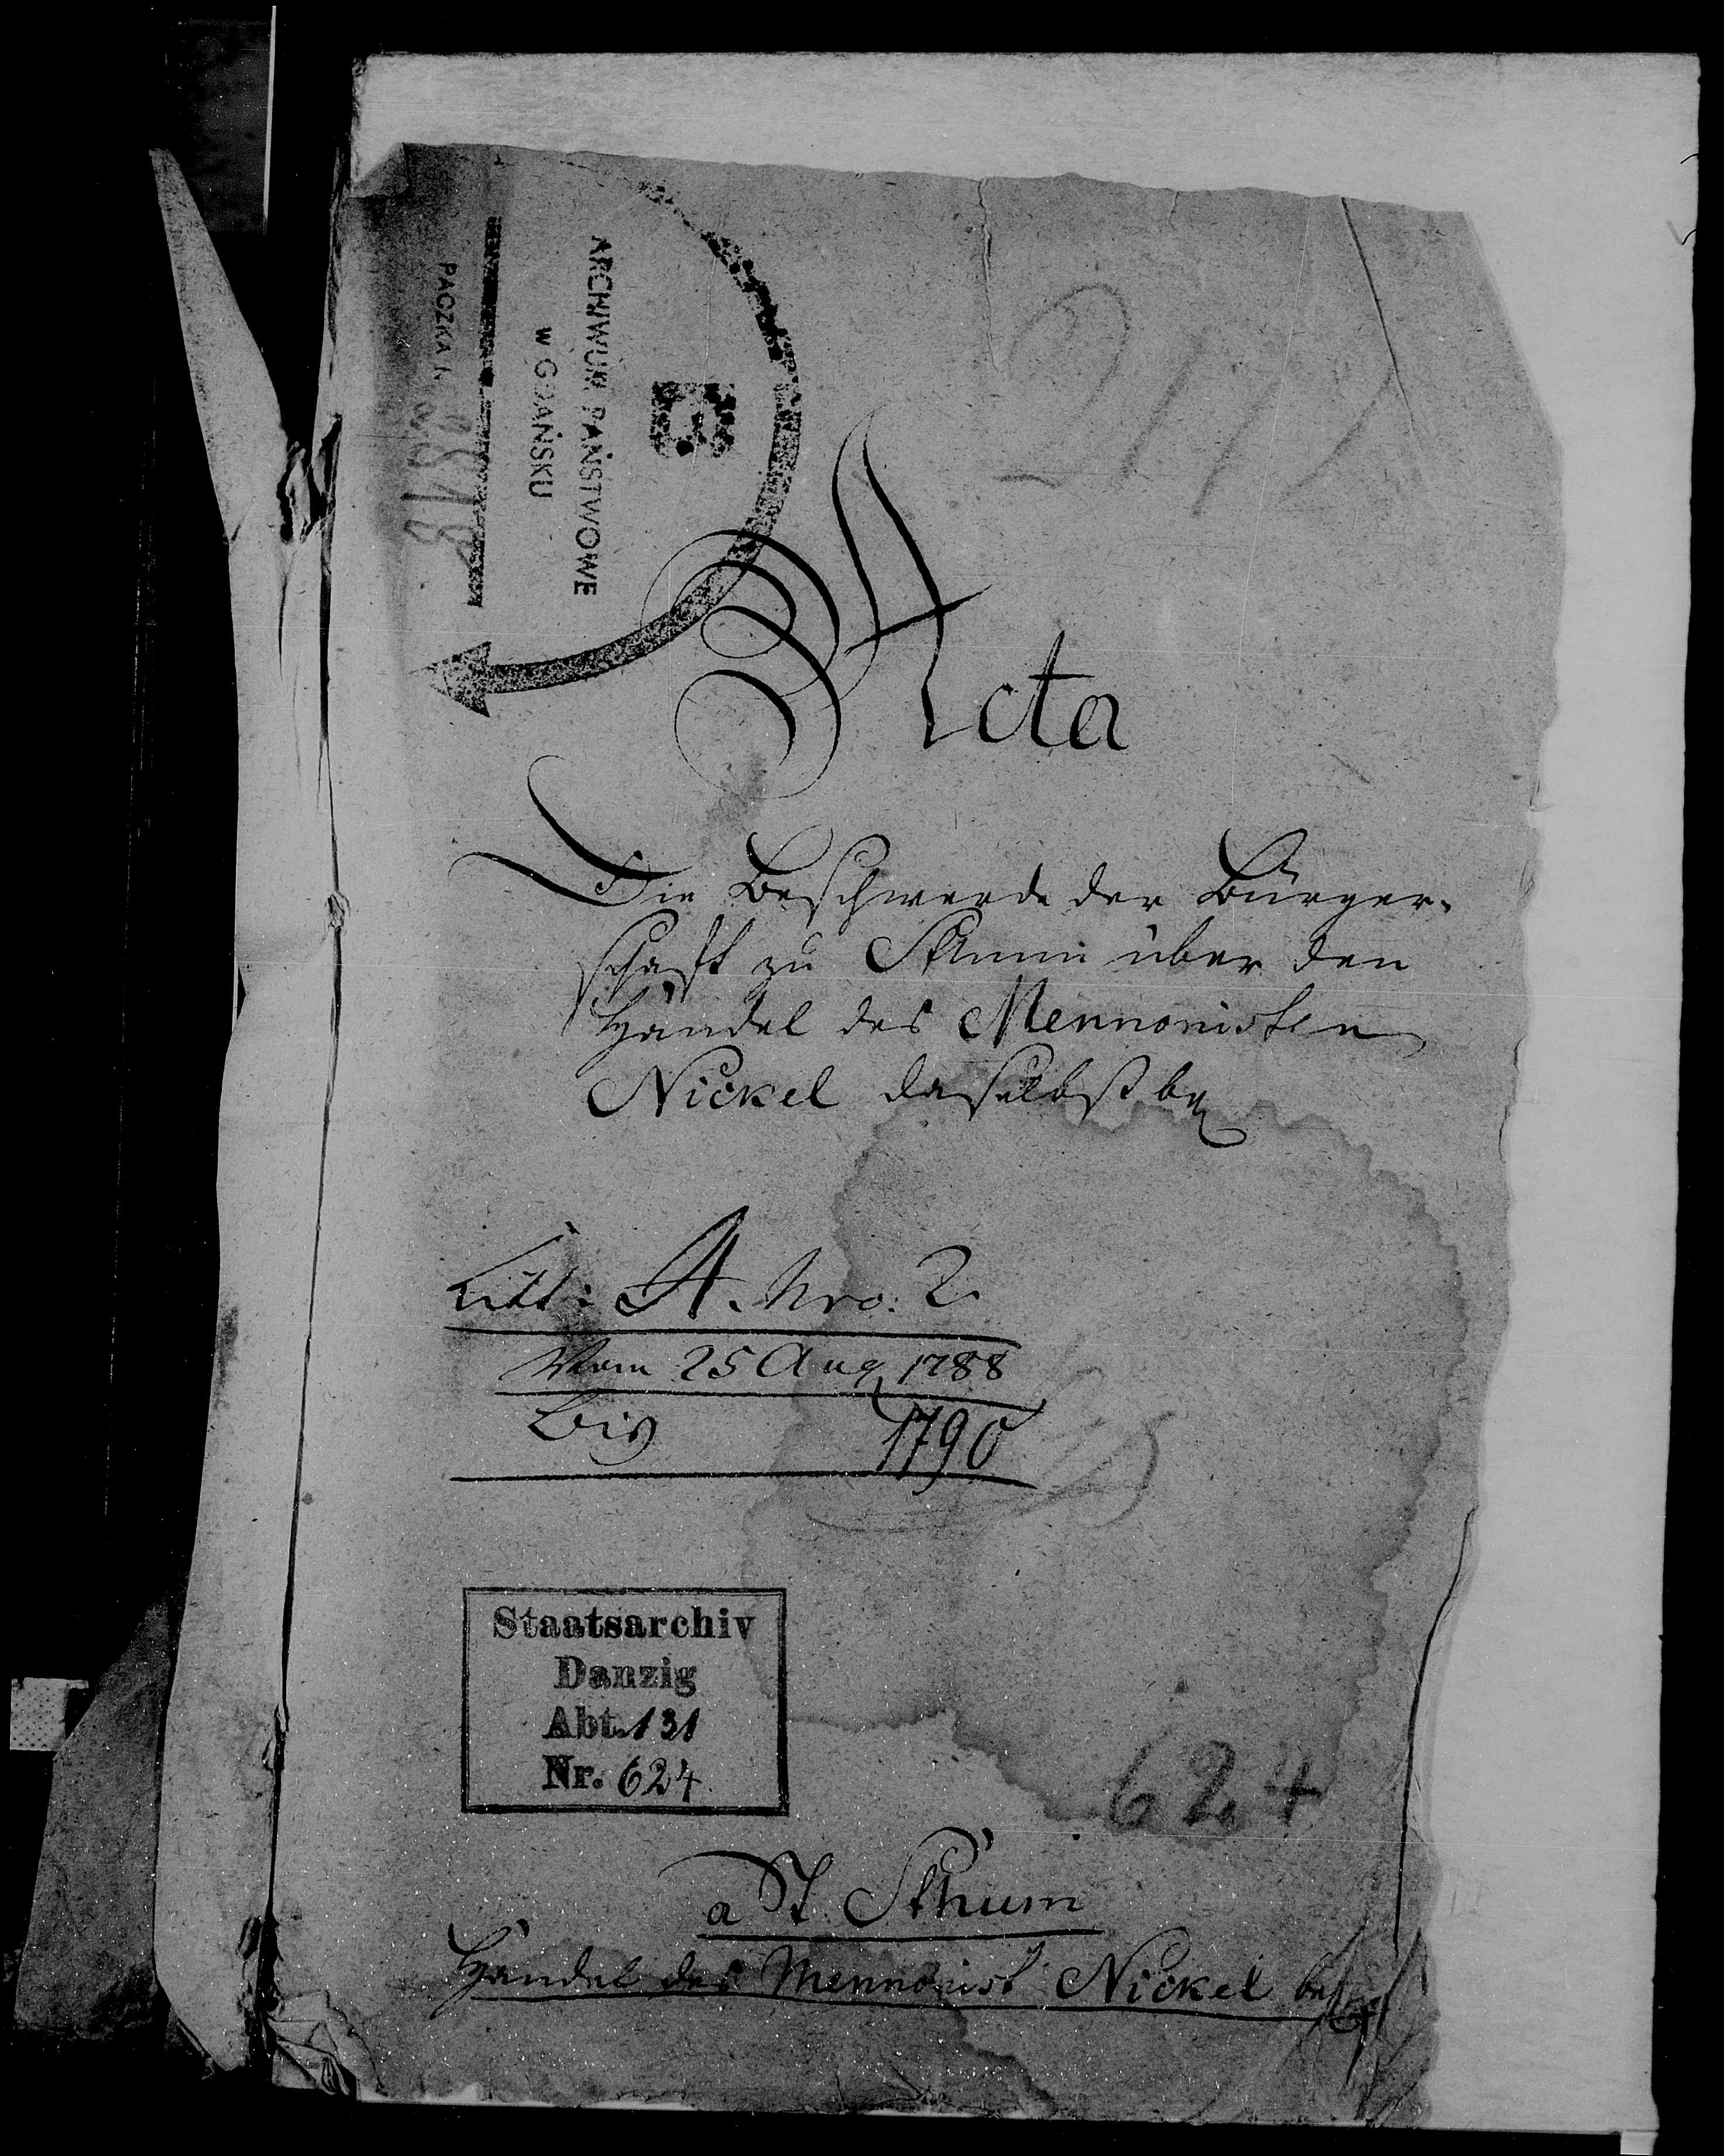 ARCHIWUM PAŃSTWOWE
w GDAŃSKU
PACZKA N
Acta
Die Beschwerde der Bürger-
schafft zu Sthum über den
Handel des Mennonisten
Nickel daselbst betr
Litt: A. Nro: 2.
Vom 25 Aug 1788
Bis 1790
Staatsarchiv
Danzig
Abt. 131
Nr. 624.
624
a St. Sthum
Handel des Mennonist Nickel betr